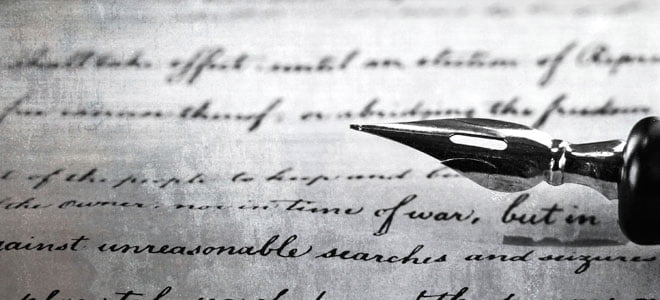 shall take effect until an election of Repre
or abridging the freedom
t of the people to keep and b
the owner, nor in time of war, but in
gainst unreasonable searches and seizures